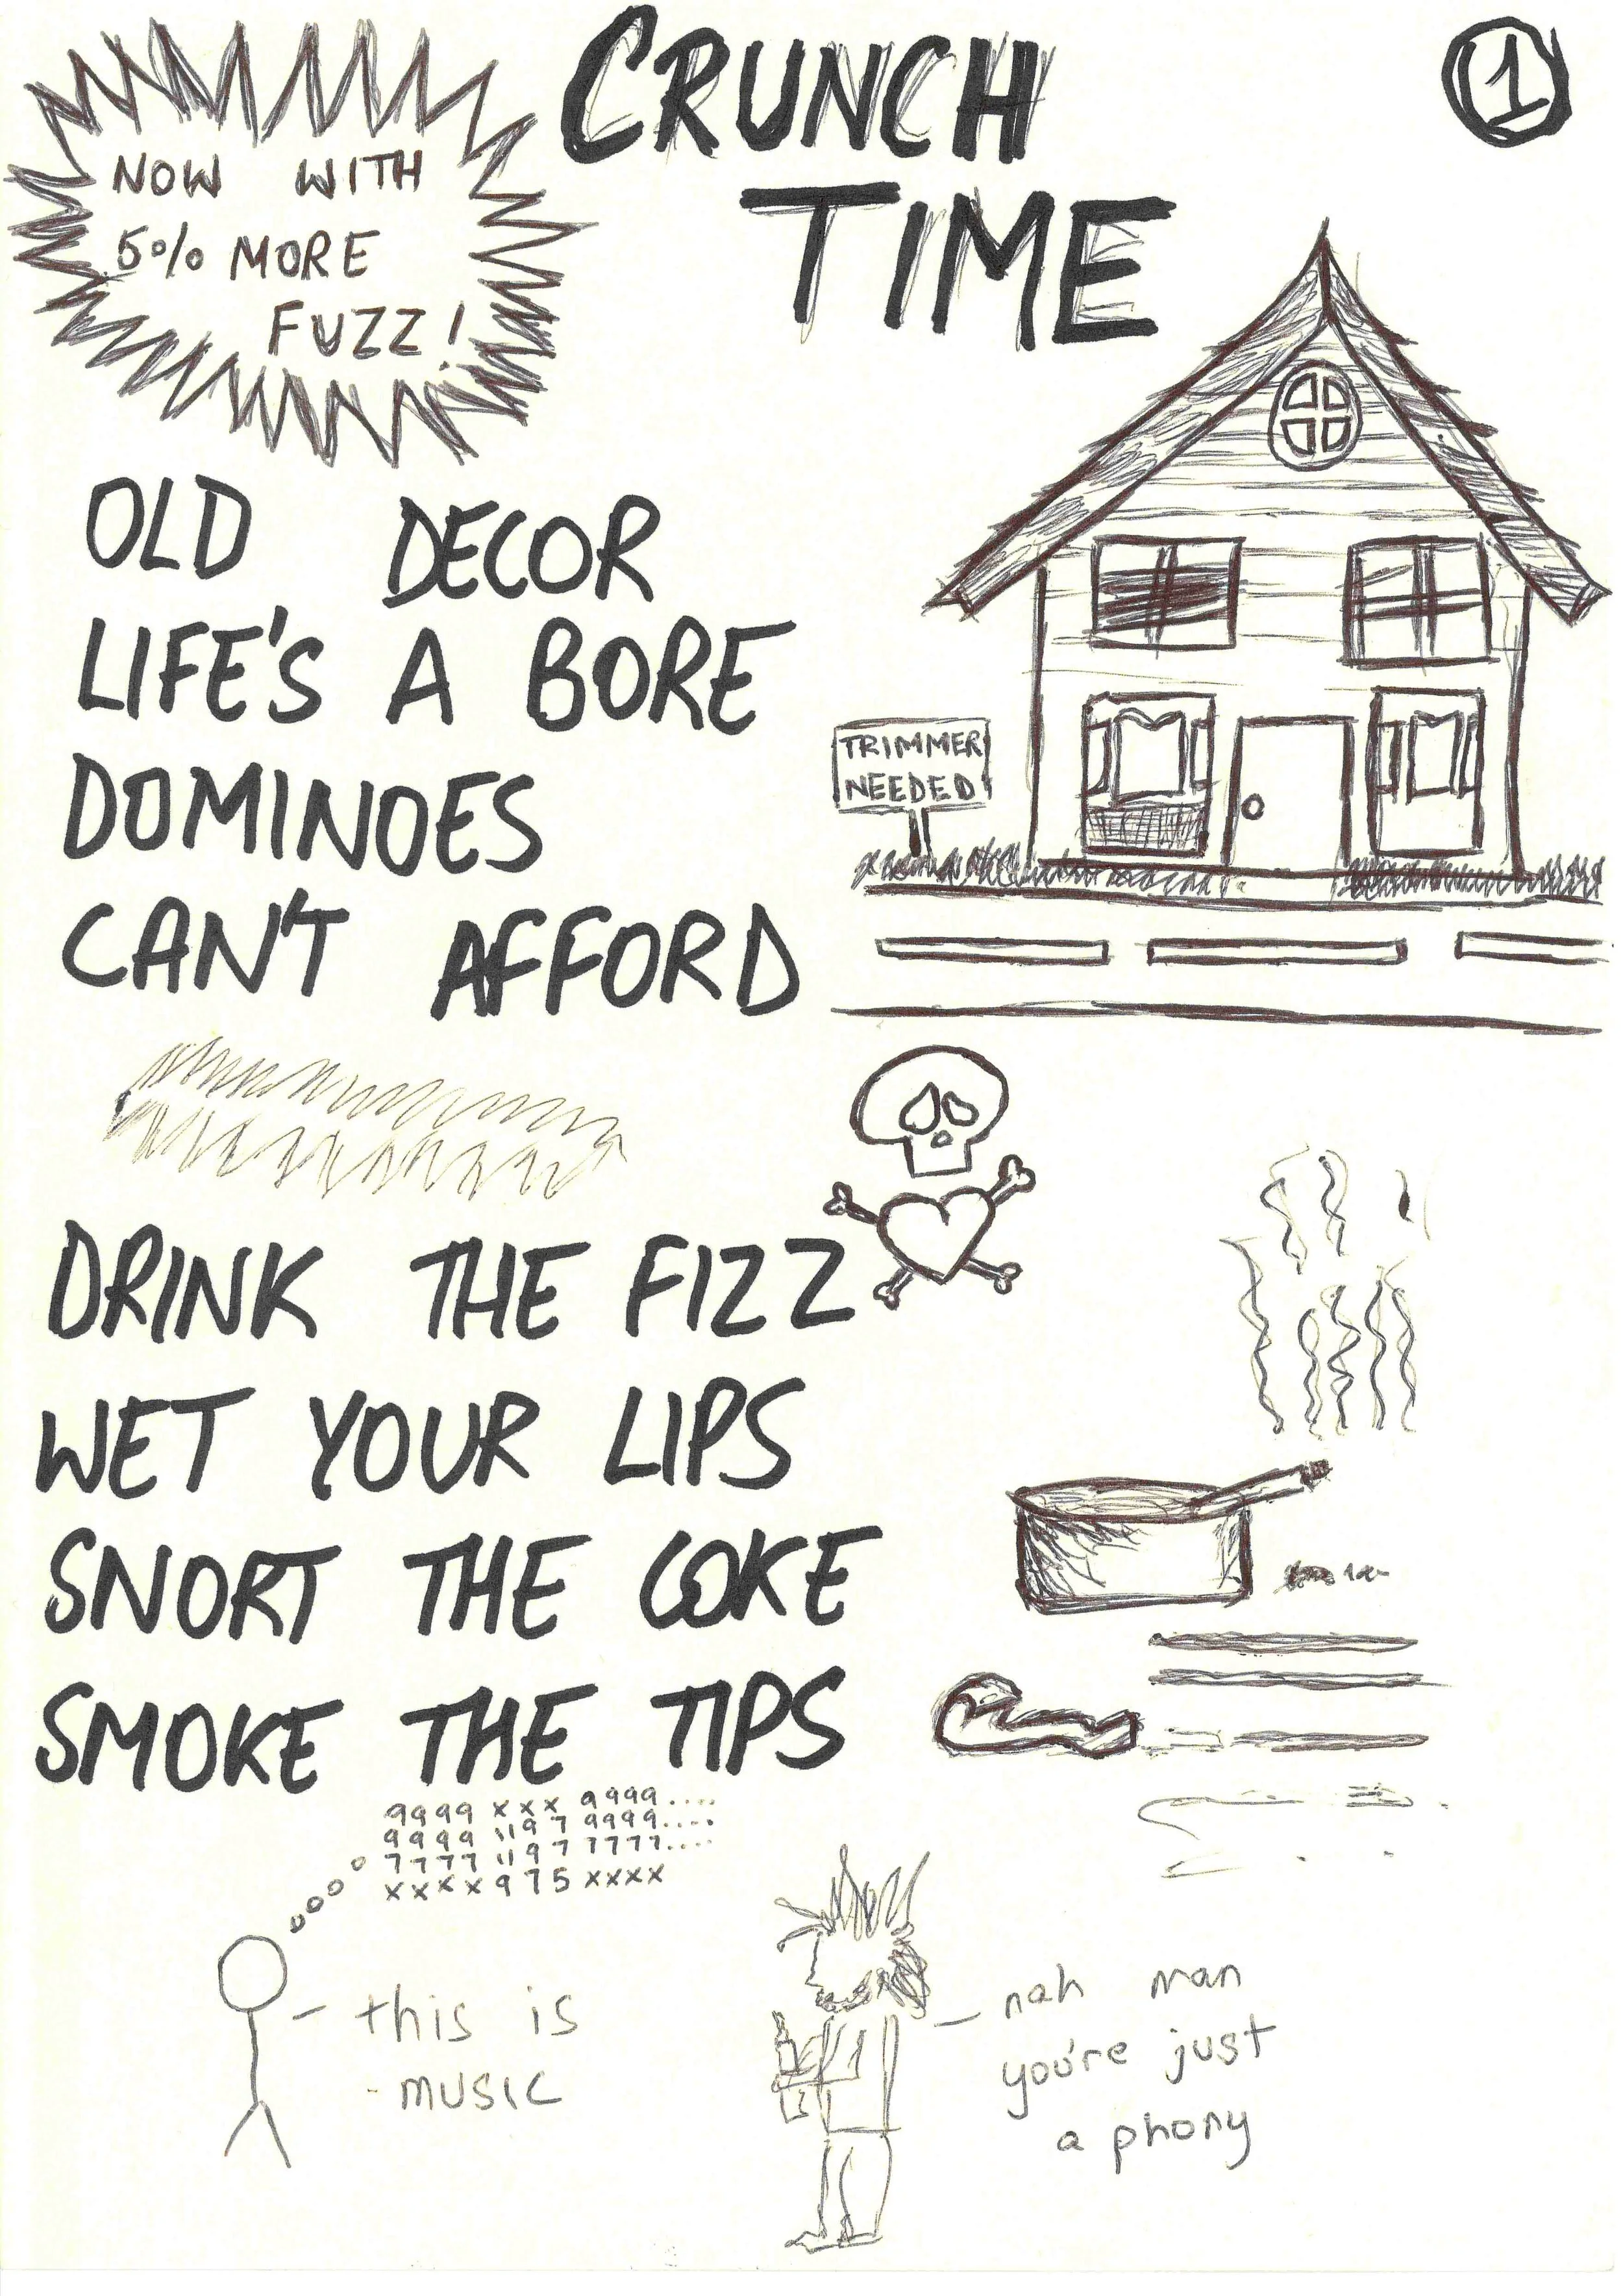 CRUNCH
TIME
1
NOW WITH
5% MORE
FUZZ!
OLD DECOR
LIFE'S A BORE
DOMINOES
CAN'T AFFORD
TRIMMER
NEEDED
DRINK THE FIZZ
WET YOUR LIPS
SNORT THE COKE
SMOKE THE TIPS
9999 xxx 9999....
9999 1197 9999....
7777 1197 7777....
xxxx975xxxx
this is
music
nah man
you're just
a phony